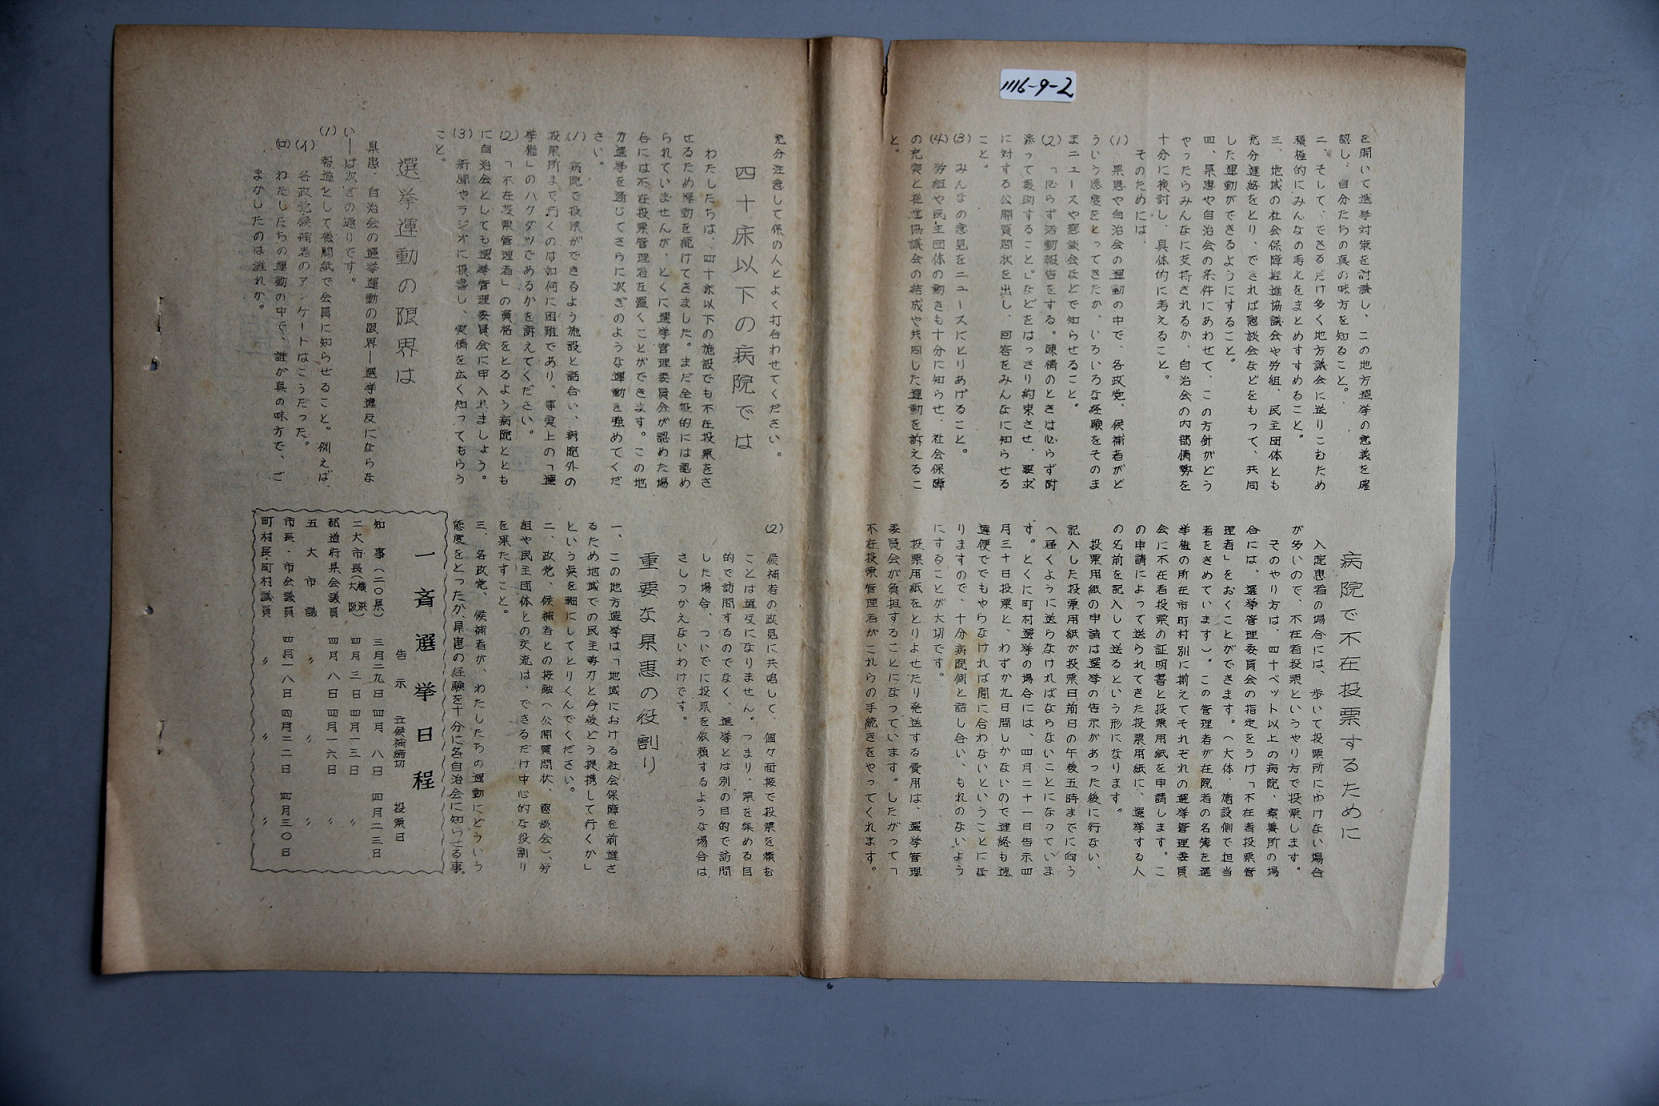 1116-9-2
を開いて選挙対策を討議し、この地方選挙の意義を確
認し、自分たちの真の味方を知ること。
二、そして、できるだけ多く地方議会に送りこむため
積極的にみんなの考えをまとめすすめること。
三、地域の社会保障推進協議会や労組、民主団体とも
充分連絡をとり、できれば懇談会などをもって、共同
した運動ができるようにすること。
四、県患や自治会の条件にあわせて、この方針がどう
やったらみんなに支持されるか、自治会の内部情勢を
十分に検討し、具体的に考えること。
そのためには、
(1) 県患や自治会の運動の中で、各政党、候補者がど
ういう態度をとってきたか、いろいろな経験をそのま
まニュースや懇談会などで知らせること。
(2) 「必らず活動報告をする。陳情のときは必らず附
添って援助すること」などをはっきり約束させ、要求
に対する公開質問状を出し、回答をみんなに知らせる
こと。
(3) みんなの意見をニュースにとりあげること。
(4) 労組や民主団体の動きも十分に知らせ、社会保障
の充実と推進協議会の結成や共同した運動を訴えるこ
と。
病院で不在投票するために
入院患者の場合には、歩いて投票所にゆけない場合
が多いので、不在者投票というやり方で投票します。
そのやり方は、四十ベット以上の病院、療養所の場
合には、選挙管理委員会の指定をうけ「不在者投票管
理者」をおくことができます。(大体、施設側で担当
者をきめています)。この管理者が在院者の名簿を選
挙権の所在市町村別に揃えてそれぞれの選挙管理委員
会に不在者投票の証明書と投票用紙を申請します。こ
の申請によって送られてきた投票用紙に、選挙する人
の名前を記入して送るという形になります。
投票用紙の申請は選挙の告示があった後に行ない、
記入した投票用紙が投票日前日の午後五時までに向う
へ届くように送らなければならないことになっていま
す。とくに町村選挙の場合には、四月二十一日告示四
月三十日投票と、わずか九日間しかないので連絡も速
達便ででもやらなければ間に合わないということにな
りますので、十分病院側と話し合い、もれのないよう
にすることが大切です。
投票用紙をとりよせたり発送する費用は、選挙管理
委員会が負担することになっています。したがって「
不在投票管理者がこれらの手続きをやってくれます。
充分注意して係の人とよく打合わせてください。
四十床以下の病院では
わたしたちは、四十床以下の施設でも不在投票をさ
せるため運動を続けてきました。まだ全般的には認め
られていませんが、とくに選挙管理委員会が認めた場
合には不在投票管理者を置くことができます。この地
方選挙を通じてさらに次ぎのような運動を強めてくだ
さい。
(1) 病院で投票ができるよう施設と話合い、病院外の
投票所まで行くのは如何に困難であり、事実上の「選
挙権」のハクダツであるかを訴えてください。
(2) 「不在投票管理者」の資格をとるよう病院ととも
に自治会としても選挙管理委員会に申入れましょう。
(3) 新聞やラジオに投書し、実情を広く知ってもらう
こと。
選挙運動の限界は
県患、自治会の選挙運動の限界―選挙違反にならな
い―は次ぎの通りです。
(1) 報道として機関紙で会員に知らせること。例えば
(イ) 各政党候補者のアンケートはこうだった。
(ロ) わたしたちの運動の中で、誰が真の味方で、ご
まかしたのは誰れか。
(2) 候補者の政見に共鳴して、個々面接で投票を頼む
ことは違反になりません。つまり、票を集める目
的で訪問するのでなく、選挙とは別の目的で訪問
した場合、ついでに投票を依頼するような場合は
さしつかえないわけです。
重要な県患の役割り
一、この地方選挙は「地域における社会保障を前進さ
るため地域での民主勢力と今後どう提携して行くか」
という点を軸にしてとりくんでください。
二、政党、候補者との接触(公開質問状、懇談会)、労
組や民主団体との交流は、できるだけ中心的な役割り
を果たすこと。
三、各政党、候補者が、わたしたちの運動にどういう
態度をとったか、県患の経験を十分に各自治会に知らせる事。
一斉選挙日程
告示 立候補締切 投票日
知事(二〇県) 三月二九日 四月八日 四月二三日
二大市長(横浜大阪) 四月三日 四月一三日 〃
都道府県会議員 四月八日 四月一六日 〃
五大市議 〃 〃 〃
市長・市会議員 四月一八日 四月二二日 四月三〇日
町村長町村議員 〃 〃 〃